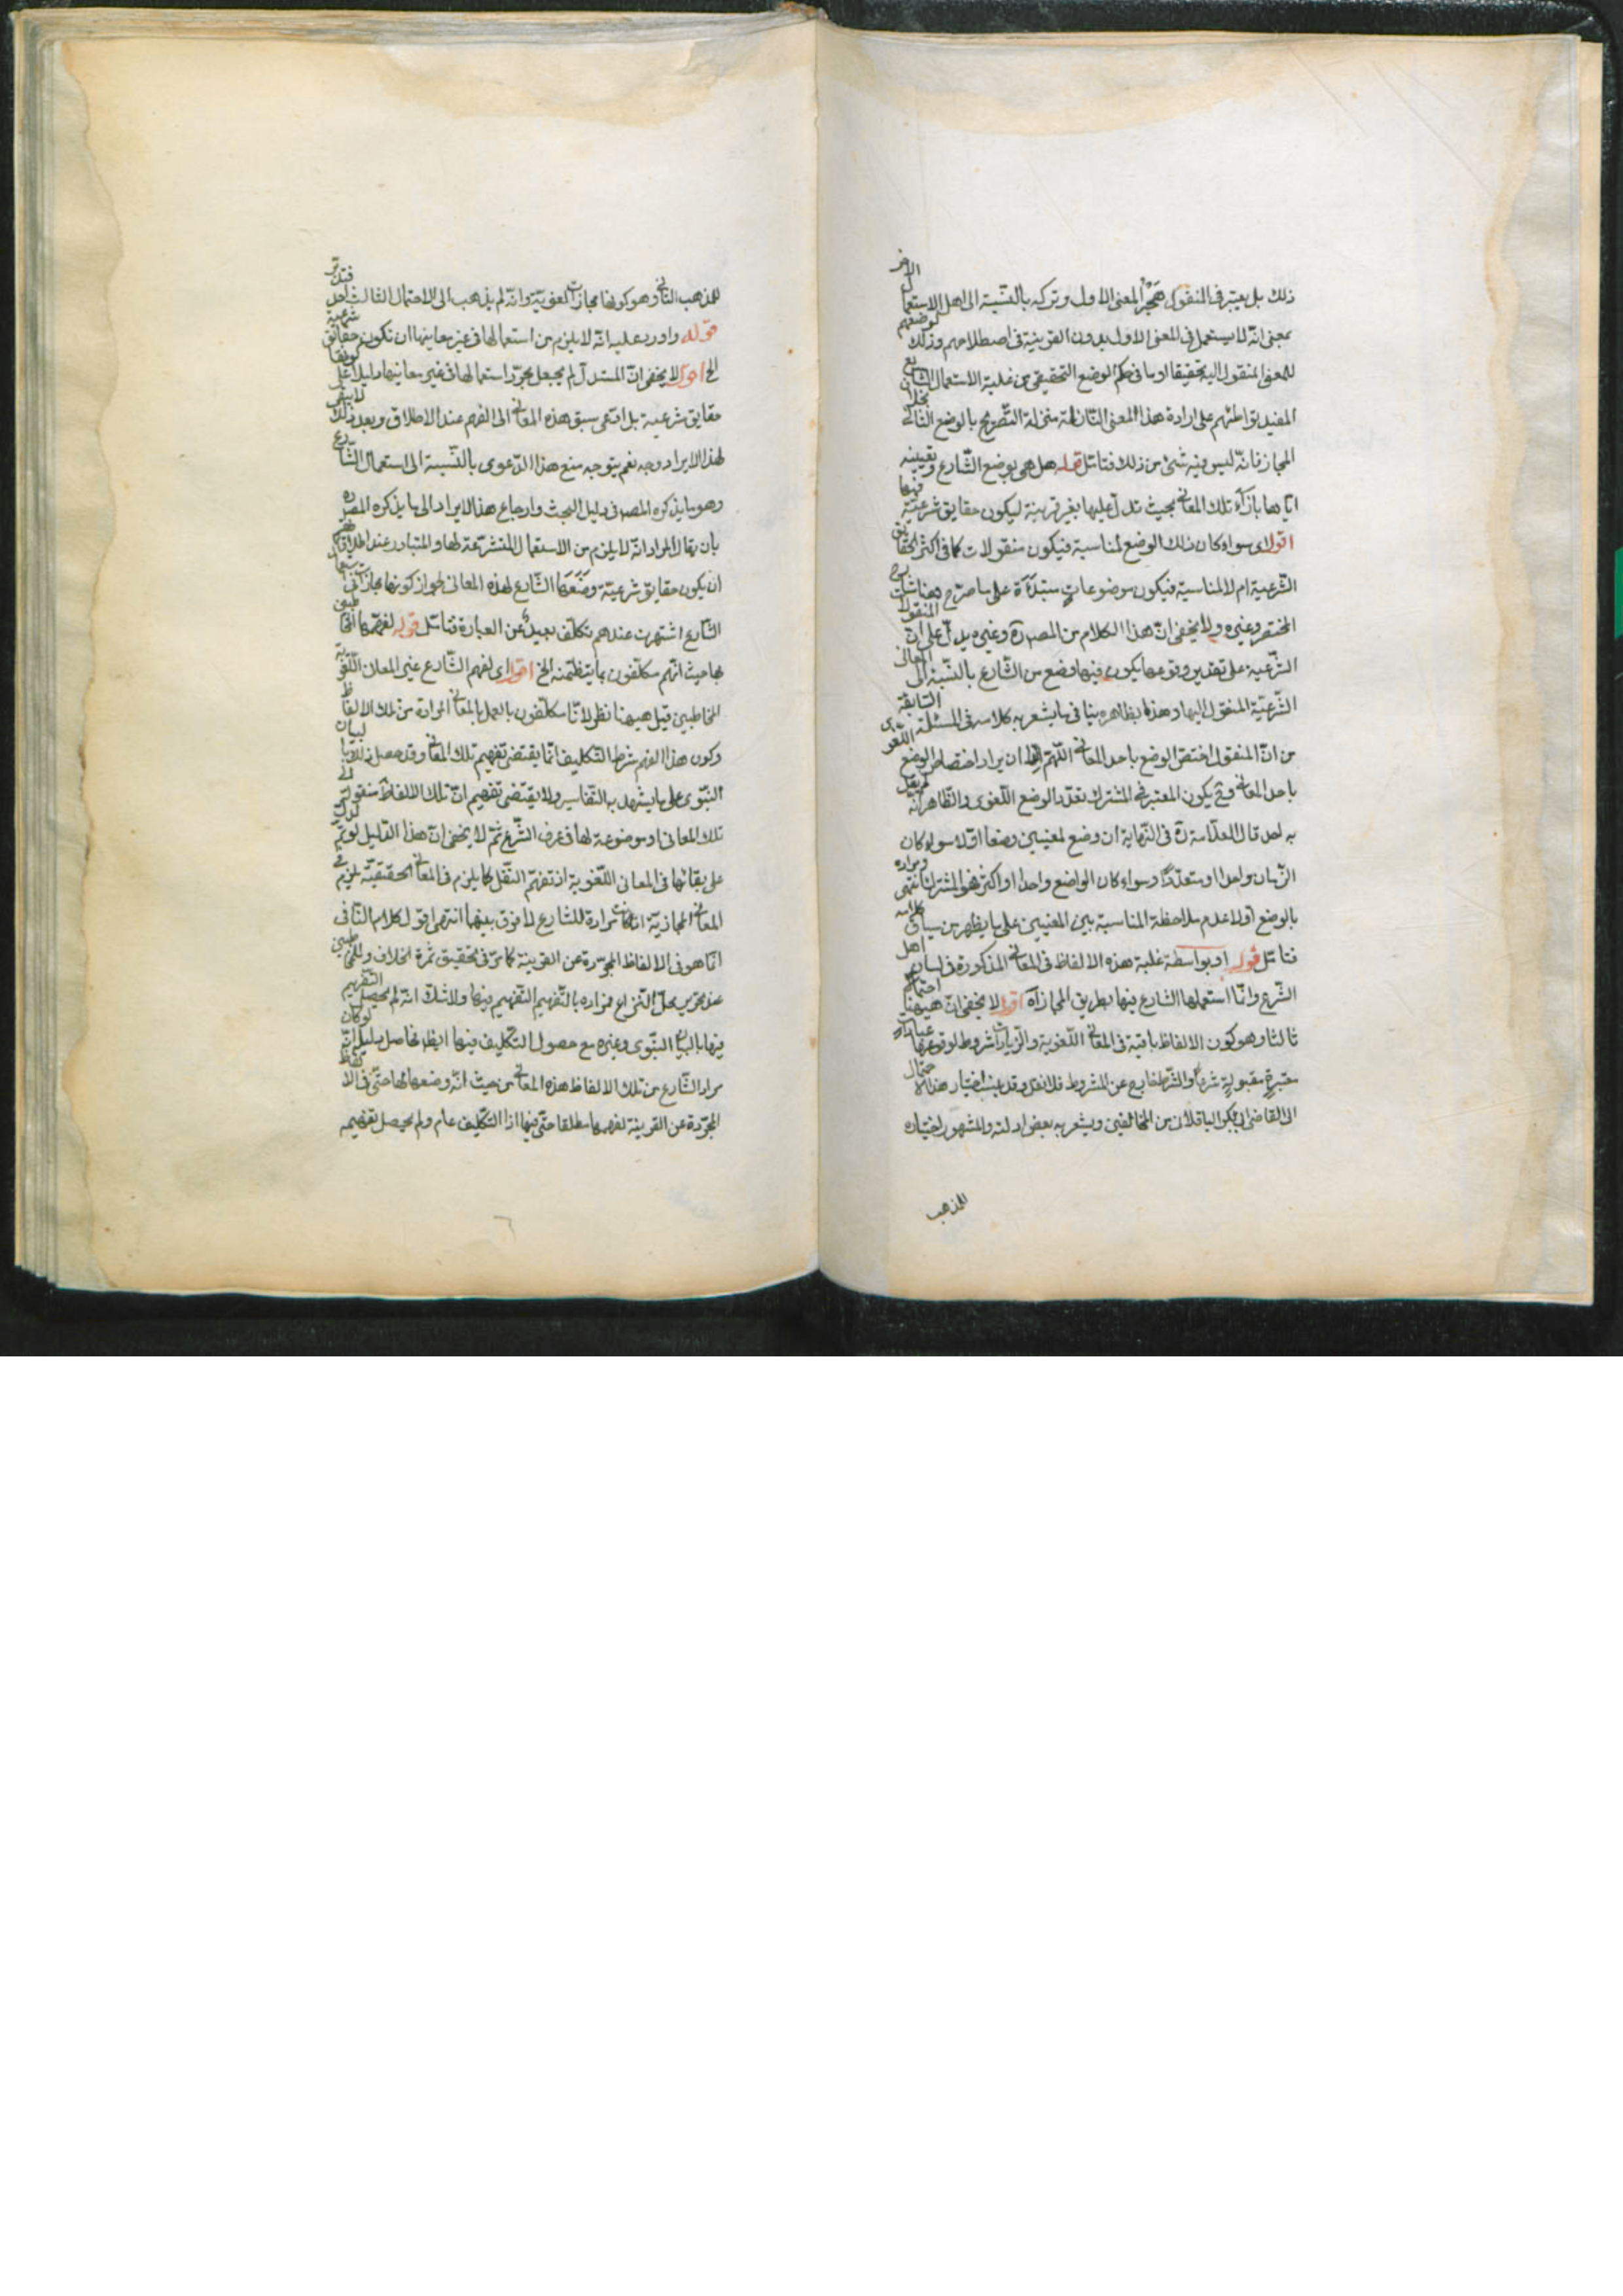 ذلك بل يعتبر فى المنقول هَجْرُ المعنى الاول وتركه بالنّسبة الى اهل الاستعمال الاخر
بمعنى انّه لا يستعمل فى المعنى الاول بدون القرينة فى اصطلاحهم وذلك لوضعهم
للمعنى المنقول اليه تحقيقا او ما فى حكم الوضع التحقيقى من غلبة الاستعمال الشايع
المفيد تواطئهم على ارادة هذا المعنى الثانى منزلة التّصريح بالوضع الثانى بخلاف
المجاز فانّه ليس فيه شئ من ذلك فتامّل قوله هل هى بوضع الشّارع وتعيينه
ايّاها بازآء تلك المعانى بحيث تدلّ عليها بغير قرينة ليكون حقايق شرعيّة فيها
اقول اى سواء كان ذلك الوضع لمناسبة فيكون منقولات كما فى اكثر الحقايق
الشّرعيّة ام لا لمناسبة فيكون موضوعات مبتدأة على ما صرّح به شارح
المختصر وغيره ولا يخفى انّ هذا الكلام من المصره وغيره يدلّ على انّ المنقولات
الشّرعيّة على تقدير وقوعها يكون فيها وضع من الشّارع بالنّسبة الى المعانى
الشّرعيّة المنقول اليها وهذا بظاهره ينافى ما يشعر به كلامه فى المسئلة السّابقة
من انّ المنقول اختصّ الوضع باحد المعانى اللّهمّ الّا ان يراد اختصاص الوضع اللّغوى
باحد المعانى وح يكون المعتبر فى المشترك تعدّد الوضع اللّغوى والظّاهر انّه لم يقل
به احد قال العلّامة ره فى النّهاية ان وضع لمعنيين وضعا اوّلا سواء كان
الزّمان واحدا او متعدّدًا وسواء كان الواضع واحدا او اكثر فهو المشترك انتهى ومراده
بالوضع اوّلا عدم ملاحظة المناسبة بين المعنيين على ما يظهر من سياق كلامه
فتامّل قوله او بواسطة غلبة هذه الالفاظ فى المعانى المذكورة فى لسان اهل
الشّرع وانّما استعملها الشارع فيها بطريق المجاز آه اقول لا يخفى انّ هيهنا احتمالا
ثالثا وهو كون الالفاظ باقية فى المعانى اللّغوية والزّيادات شروط لوقوعها عبادات
معتبرةٍ مقبولةٍ شرعًا والشّرط خارج عن المشروط فلا نقل وقد ينسب اختيار هذا الاحتمال
الى القاضى ابى بكر الباقلانى من المخالفين ويشعر به بعض ادلته والمشهور اختياره
للمذهب
للمذهب الثانى وهو كونها مجازات لغويّة وانّه لم يذهب الى الاحتمال الثالث احد فتدبّر
قوله واورد عليه انّه لا يلزم من استعمالها فى غير معانيها ان تكون حقايق شرعية
الخ اقول لا يخفى انّ المستدلّ لم يجعل مجرّد استعمالها فى غير معانيها دليلا على كونها
حقايق شرعيه بل ادّعى سبق هذه المعانى الى الفهم عند الاطلاق وبعد ذلك لا يبقى
لهذا الايراد وجه نعم يتوجه منع هذا الدّعوى بالنّسبة الى استعمال الشّارع
وهو ما يذكره المصره فى دليل البحث وارجاع هذا الايراد الى ما يذكره المصره
بان يقال المراد انّه لا يلزم من الاستعمال المتشرّعة لها والمتبادر عند اطلاقهم
ان يكون حقايق شرعيّة وضَعَها الشّارع لهذه المعانى لجواز كونها مجازات
الشّارع اشتهرت عندهم تكلّف بعيدٌ عن العبارة فتامّل قوله لفهّمها المخاطبين
بها حيث انّهم مكلّفون بما يتضمّنه الخ اقول اى لفهم الشّارع غير المعانى اللّغويّة
المخاطبين قيل هيهنا نظر لانّا مكلّفون بالعمل بالمعانى المرادة من تلك الالفاظ
وكون هذا الفهم شرط التّكليف انّما يقتضى تفهيم تلك المعانى وقد حصل ذلك بالبيان
النّبوى على ما يشهد به التّفاسير ولا يقتضى تفهيم انّ تلك الالفاظ منقولة الى
تلك المعانى او موضوعة لها فى عرف الشّرع ثمّ لا يخفى انّ هذا الدّليل لو تمّ لدلّ
على بقائها فى المعانى اللّغوية اذ تفهيم النّقل كما يلزم فى المعانى الحقيقيّة يلزم فى
المعانى المجازيّة اذا كانت مرادة للشارع لا فرق بينهما انتهى اقول كلام النّافى
انّما هو فى الالفاظ المجرّدة عن القرينة كما مرّ فى تحقيق ثمرة الخلاف وللمخاطبين
عند تحرير محلّ النّزاع فمراده بالتّفهيم التّفهيم فيها ولا شكّ انّه لم يحصل التّفهيم
فيها بالبيان النّبوى وغيره مع حصول التّكليف فيها ايظ فحاصل دليله انّه لو كان
مراد الشّارع من تلك الالفاظ هذه المعانى من حيث انّه وضعها لها حتّى فى الالفاظ
المجرّدة عن القرينة لفهمها مطلقا حتّى فيها اذا التّكليف عام ولم يحصل تفهيمه